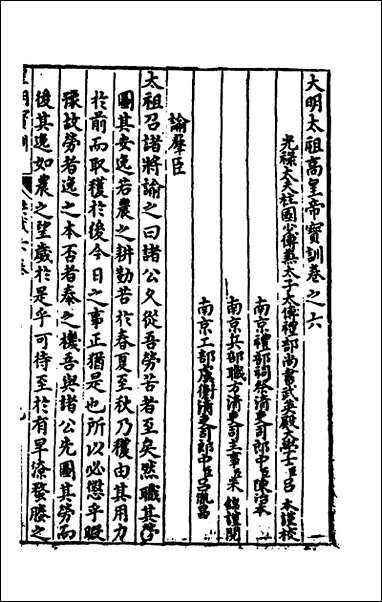 大明太祖高皇帝寶訓卷之六
光祿太夫柱國少傅兼太子太傅禮部尚書武英殿大學士臣呂 本謹校
南京禮部祠祭清吏司郎中臣陳治本
南京兵部職方清吏司主事臣朱 錦謹閱
南京工部虞衡清吏司郎中臣呂胤昌
諭羣臣
太祖召諸將諭之曰諸公久從吾勞苦者至矣然職其勞
圖其安逸若農之耕勤苦於春夏至秋乃穫由其用力
於前而取穫於後今日之事正猶是也所以必懲乎暇
豫故勞者逸之本否者泰之機吾與諸公先圖其勞而
後其逸如農之望歲於是乎可待至於有旱潦螽螣之
皇明寶訓